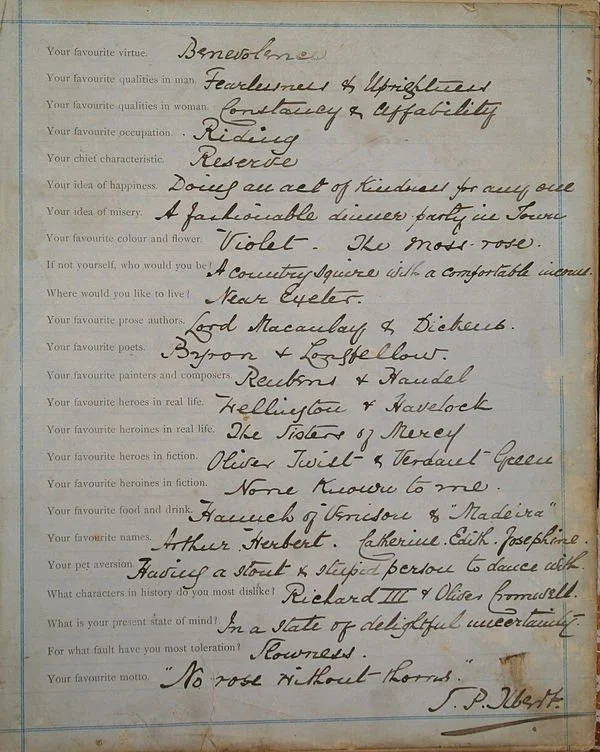 Your favourite virtue. Benevolence
Your favourite qualities in man. Fearlessness & Uprightness
Your favourite qualities in woman. Constancy & Affability
Your favourite occupation. Riding
Your chief characteristic. Reserve
Your idea of happiness. Doing an act of Kindness for any one
Your idea of misery. A fashionable dinner party in Town
Your favourite colour and flower. Violet - The Moss-rose.
If not yourself, who would you be? A country squire with a comfortable income.
Where would you like to live? Near Exeter.
Your favourite prose authors. Lord Macaulay & Dickens.
Your favourite poets. Byron & Longfellow.
Your favourite painters and composers. Reubens & Handel
Your favourite heroes in real life. Wellington & Havelock
Your favourite heroines in real life. The Sisters of Mercy
Your favourite heroes in fiction. Oliver Twist & Verdant Green
Your favourite heroines in fiction. None Known to me.
Your favourite food and drink. Haunch of Venison & "Madeira"
Your favourite names. Arthur. Herbert. Catherine. Edith. Josephine.
Your pet aversion. Having a stout & stupid person to dance with.
What characters in history do you most dislike? Richard III & Oliver Cromwell.
What is your present state of mind? In a state of delightful uncertainty.
For what fault have you most toleration? Slowness.
Your favourite motto. "No rose without thorns."